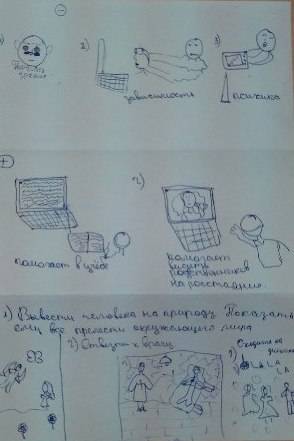 1)
2)
3)
зависимость
психика
+
2)
помогает в учёбе
помогает
видеть
родственников
на расстоянии.
1) Вывести человека на природу. Показать
ему все прелести окружающего мира
2) Отвезти к врачу
3)
Сходить на
LA LA
LA